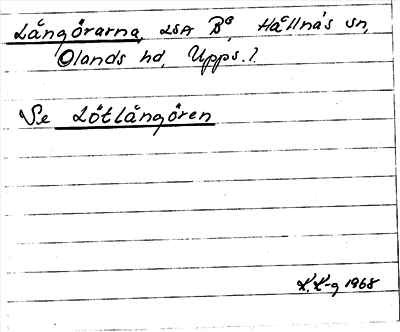 Långörarna, LSA Bå, Hållnäs sn,
Olands hd, Upps. l.
Se Lötlångören
K. K-g 1968